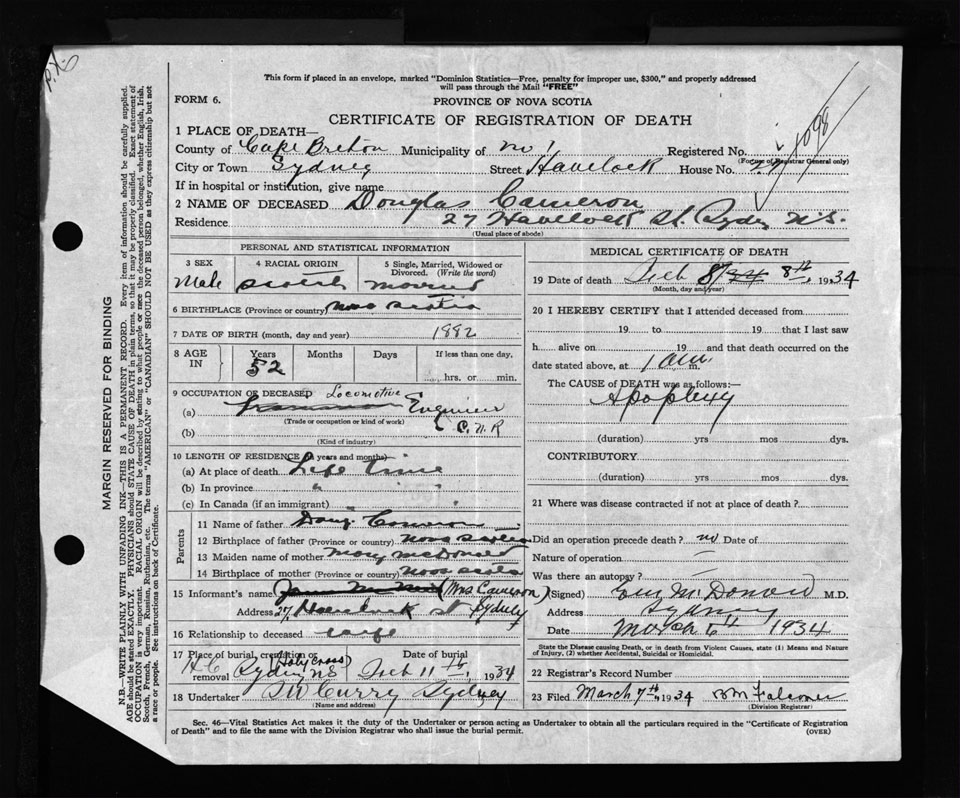 This form if placed in an envelope, marked "Dominion Statistics—Free, penalty for improper use, $300," and properly addressed
will pass through the Mail "FREE"
FORM 6.
PROVINCE OF NOVA SCOTIA
CERTIFICATE OF REGISTRATION OF DEATH
1 PLACE OF DEATH—
County of Cape Breton Municipality of Registered No.
(For use of Registrar General only)
City or Town Sydney Street Havelock House No. 27
If in hospital or institution, give name
2 NAME OF DECEASED Douglas Cameron
Residence 27 Havelock St. Sydn N.S.
(Usual place of abode)
PERSONAL AND STATISTICAL INFORMATION
3 SEX
Male
4 RACIAL ORIGIN
Scotish
5 Single, Married, Widowed or
Divorced. (Write the word)
married
6 BIRTHPLACE (Province or country) Nova Scotia
7 DATE OF BIRTH (month, day and year) 1882
8 AGE IN
Years
52
Months
Days
If less than one day,
hrs. or min.
9 OCCUPATION OF DECEASED Locomotive
(a) Engineer
(Trade or occupation or kind of work)
(b) C.N.R
(Kind of industry)
10 LENGTH OF RESIDENCE (in years and months)
(a) At place of death Life time
(b) In province " "
(c) In Canada (if an immigrant) " "
Parents
11 Name of father Doug Cameron
12 Birthplace of father (Province or country) Nova Scotia
13 Maiden name of mother Mary McDonald
14 Birthplace of mother (Province or country) Nova Scotia
15 Informant's name (Mrs Cameron)
Address 27 Havelock St Sydney
16 Relationship to deceased wife
17 Place of burial, cremation or
removal H C Sydney NS (Holy Cross)
Date of burial
Feb 11th, 1934
18 Undertaker TW Curry Sydney
(Name and address)
MEDICAL CERTIFICATE OF DEATH
19 Date of death Feb 8th, 1934
(Month, day and year)
20 I HEREBY CERTIFY that I attended deceased from
19 to 19 that I last saw
h alive on 19 and that death occurred on the
date stated above, at 1 am m.
The CAUSE of DEATH was as follows:—
Apoplexy
(duration) yrs mos dys.
CONTRIBUTORY
(duration) yrs mos dys.
21 Where was disease contracted if not at place of death?
Did an operation precede death? no Date of
Nature of operation
Was there an autopsy?
(Signed) McDonald M.D.
Address Sydney
Date March 6th 1934
State the Disease causing Death, or in death from Violent Causes, state (1) Means and Nature
of Injury, (2) whether Accidental, Suicidal or Homicidal.
22 Registrar's Record Number
23 Filed March 7th, 1934 Falconer
(Division Registrar)
Sec. 46—Vital Statistics Act makes it the duty of the Undertaker or person acting as Undertaker to obtain all the particulars required in the "Certificate of Registration
of Death" and to file the same with the Division Registrar who shall issue the burial permit.
(OVER)
MARGIN RESERVED FOR BINDING
N.B.—WRITE PLAINLY WITH UNFADING INK—THIS IS A PERMANENT RECORD. Every item of information should be carefully supplied.
AGE should be stated EXACTLY. PHYSICIANS should STATE CAUSE OF DEATH in plain terms, so that it may be properly classified. Exact statement of
OCCUPATION is very important. RACIAL ORIGIN will be described by stating to what people or race the deceased person belonged, whether English, Irish,
Scotch, French, German, Russian, Ruthenian, etc. The terms "AMERICAN" or "CANADIAN" SHOULD NOT BE USED as they express citizenship but not
a race or people. See instructions on back of Certificate.